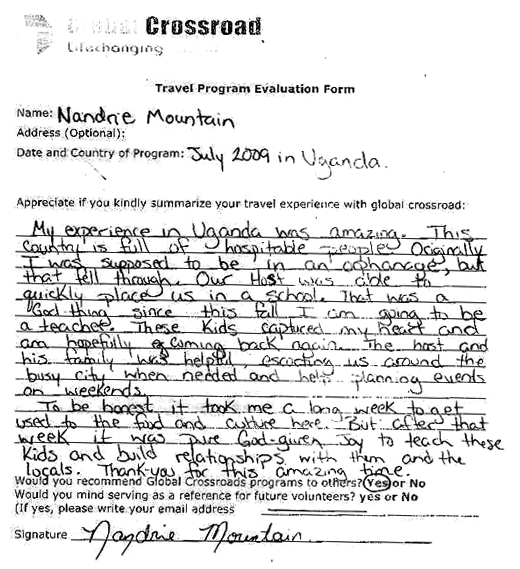 Global Crossroad
Lifechanging
Travel Program Evaluation Form
Name: Nandrie Mountain
Address (Optional):
Date and Country of Program: July 2009 in Uganda.
Appreciate if you kindly summarize your travel experience with global crossroad:
My experience in Uganda was amazing. This
Country is full of hospitable people. Originally
I was supposed to be in an orphanage, but
that fell through. Our Host was able to
quickly place us in a school. That was a
"God-thing" since this fall I am going to be
a teacher. These Kids captured my heart and
am hopefully coming back again. The host and
his family was helpful, escorting us around the
busy city when needed and help planning events
on weekends.
To be honest it took me a long week to get
used to the food and culture here. But after that
week it was pure God-given Joy to teach these
Kids and build relationships with them and the
locals. Thank-you for this amazing time.
Would you recommend Global Crossroads programs to others? Yes or No
Would you mind serving as a reference for future volunteers? yes or No
(If yes, please write your email address
Signature Nandrie Mountain